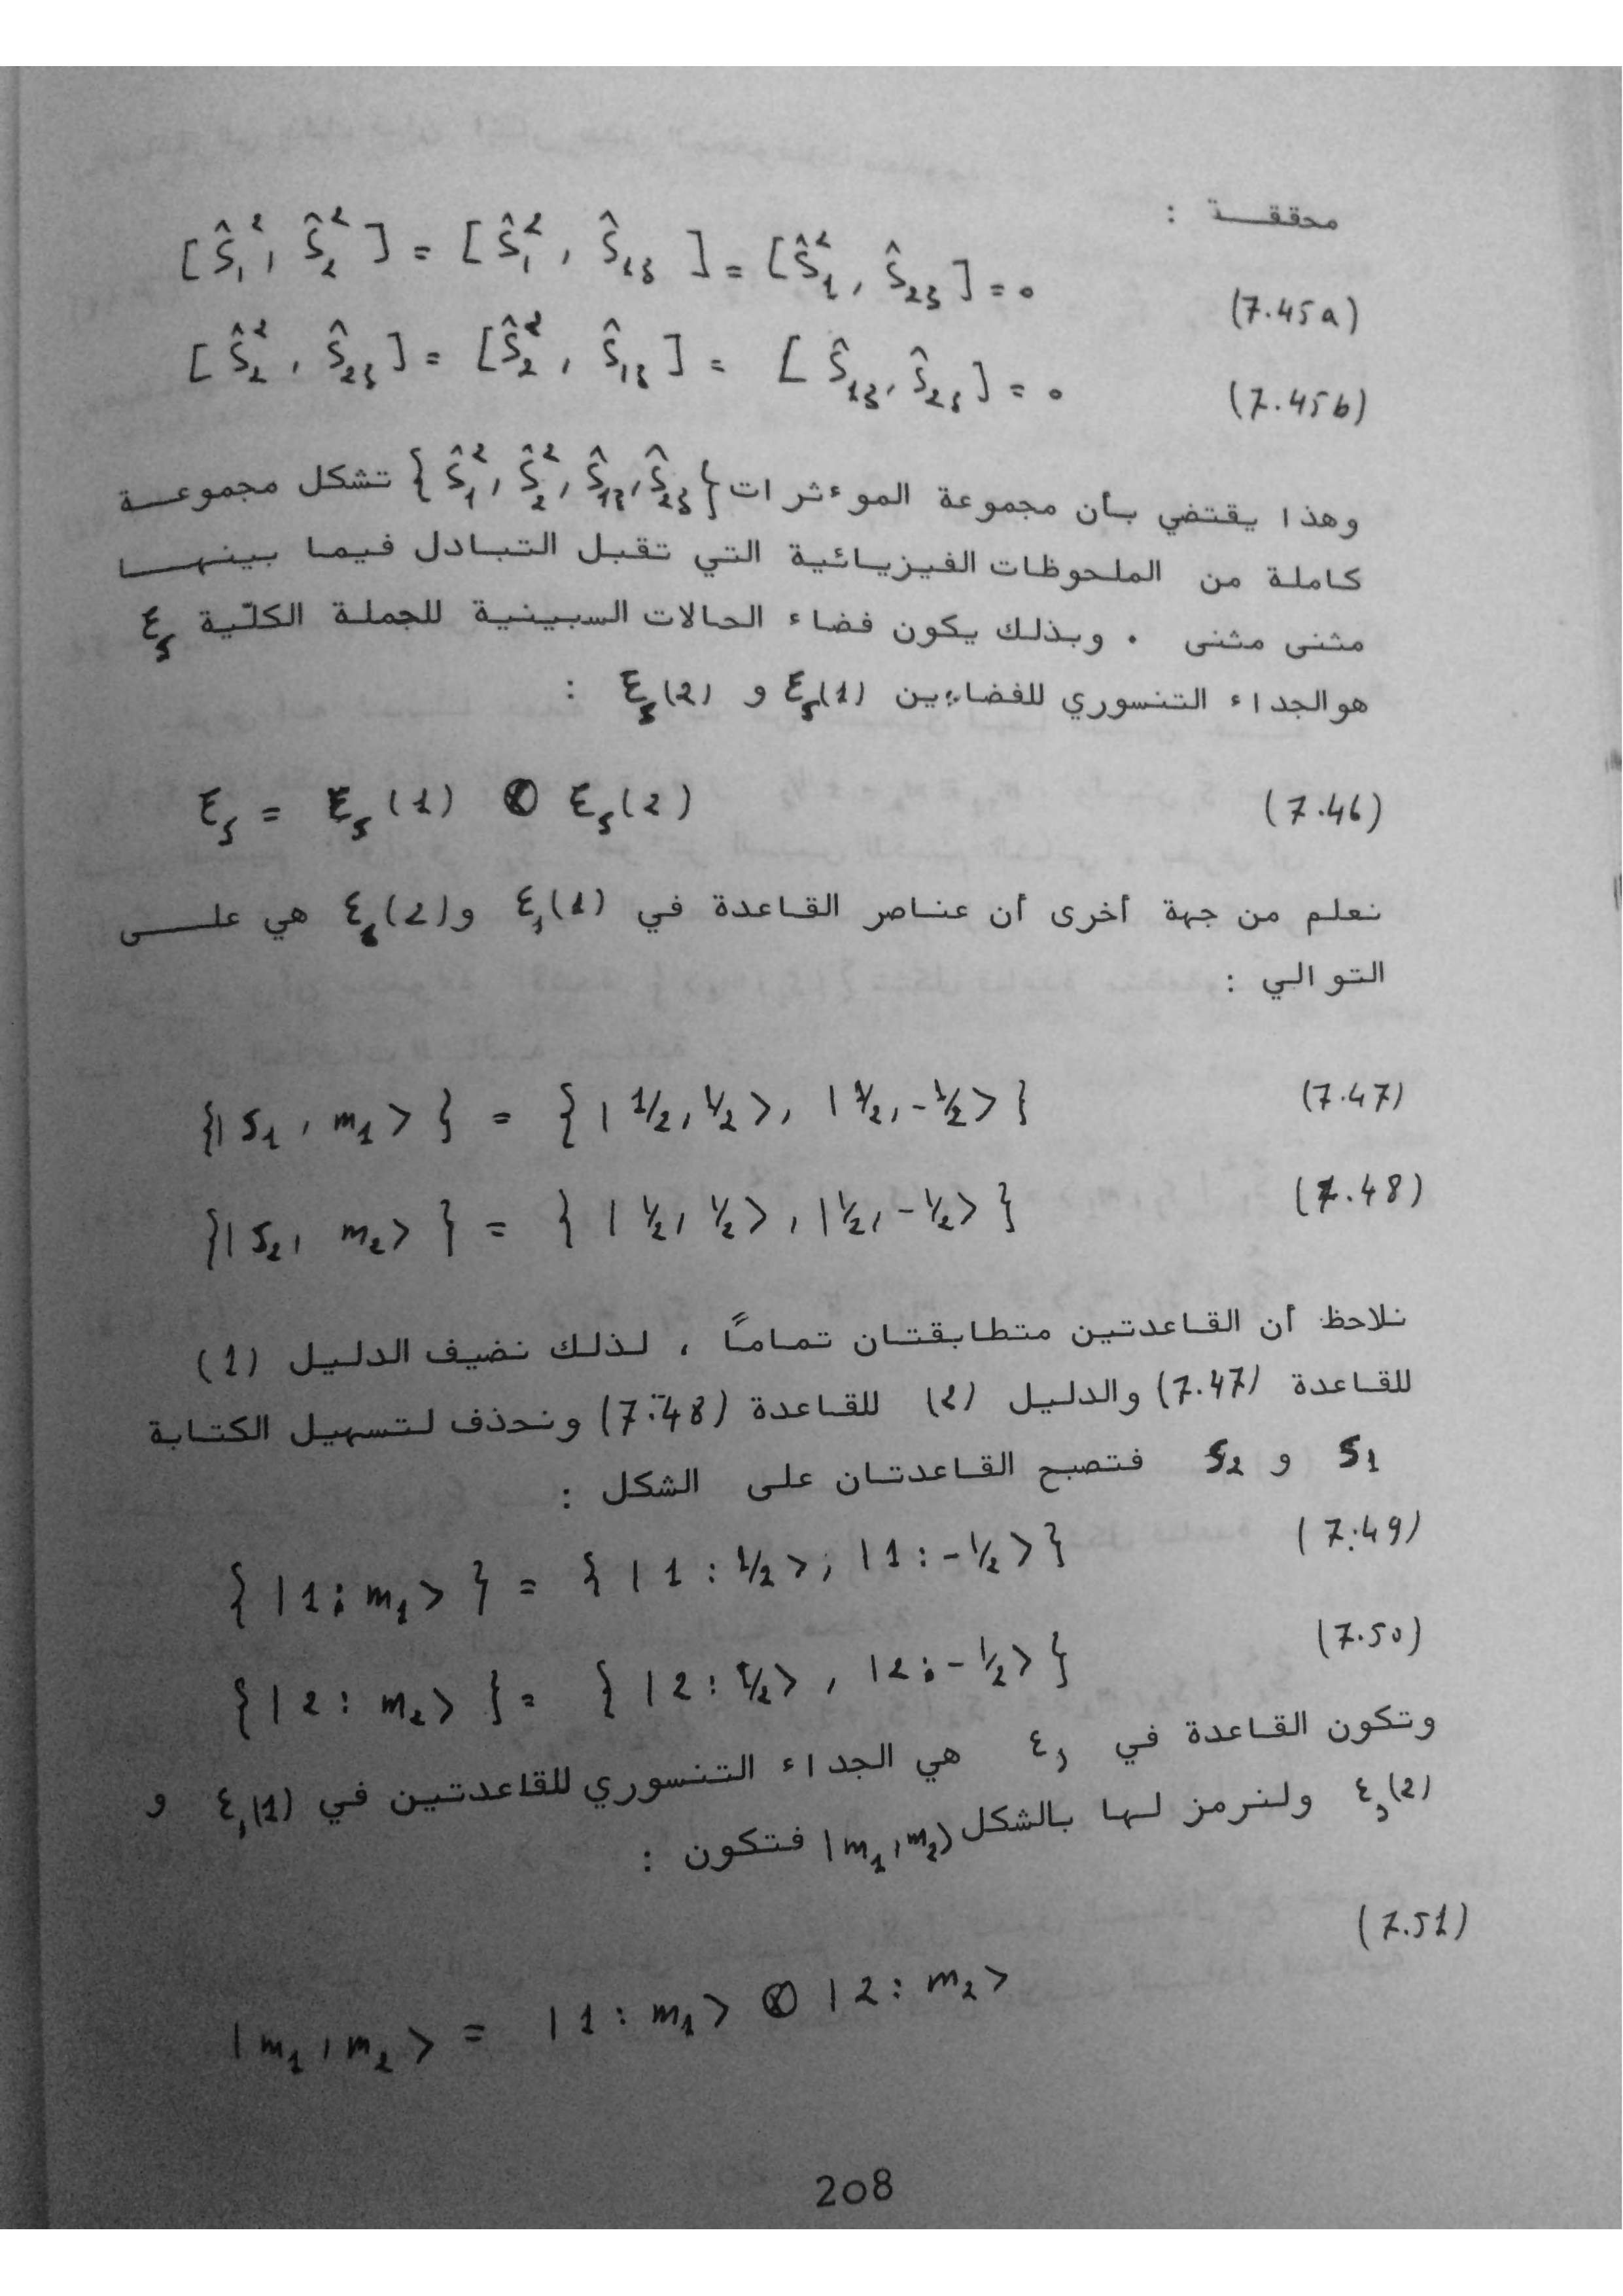 محققة :
[Ŝ₁², Ŝ₂²] = [Ŝ₁², Ŝ₁₃] = [Ŝ₁², Ŝ₂₃] = 0 (7.45a)
[Ŝ₂², Ŝ₂₃] = [Ŝ₂², Ŝ₁₃] = [Ŝ₁₃, Ŝ₂₃] = 0 (7.45b)
وهذا يقتضي بأن مجموعة الموءثرات {Ŝ₁², Ŝ₂², Ŝ₁₃, Ŝ₂₃} تشكل مجموعة
كاملة من الملحوظات الفيزيائية التي تقبل التبادل فيما بينهما
مثنى مثنى . وبذلك يكون فضاء الحالات السبينية للجملة الكلّية Ɛₛ
هو الجداء التنسوري للفضاءين Ɛₛ(1) و Ɛₛ(2) :
Ɛₛ = Ɛₛ(1) ⊗ Ɛₛ(2) (7.46)
نعلم من جهة أخرى أن عناصر القاعدة في Ɛₛ(1) و Ɛₛ(2) هي على
التوالي :
{|s₁, m₁>} = {|1/2, 1/2>, |1/2, -1/2>} (7.47)
{|s₂, m₂>} = {|1/2, 1/2>, |1/2, -1/2>} (7.48)
نلاحظ أن القاعدتين متطابقتان تماماً ، لذلك نضيف الدليل (1)
للقاعدة (7.47) والدليل (2) للقاعدة (7.48) ونحذف لتسهيل الكتابة
s₁ و s₂ فتصبح القاعدتان على الشكل :
{|1: m₁>} = {|1: 1/2>; |1: -1/2>} (7.49)
{|2: m₂>} = {|2: 1/2>, |2: -1/2>} (7.50)
وتكون القاعدة في Ɛₛ هي الجداء التنسوري للقاعدتين في Ɛₛ(1) و
Ɛₛ(2) ولنرمز لها بالشكل |m₁, m₂> فتكون :
|m₁, m₂> = |1: m₁> ⊗ |2: m₂> (7.51)
208